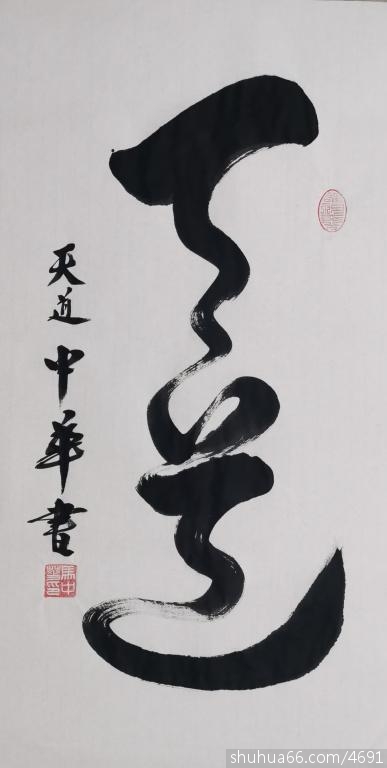 天道
天道 中华书
shuhua66.com/4691